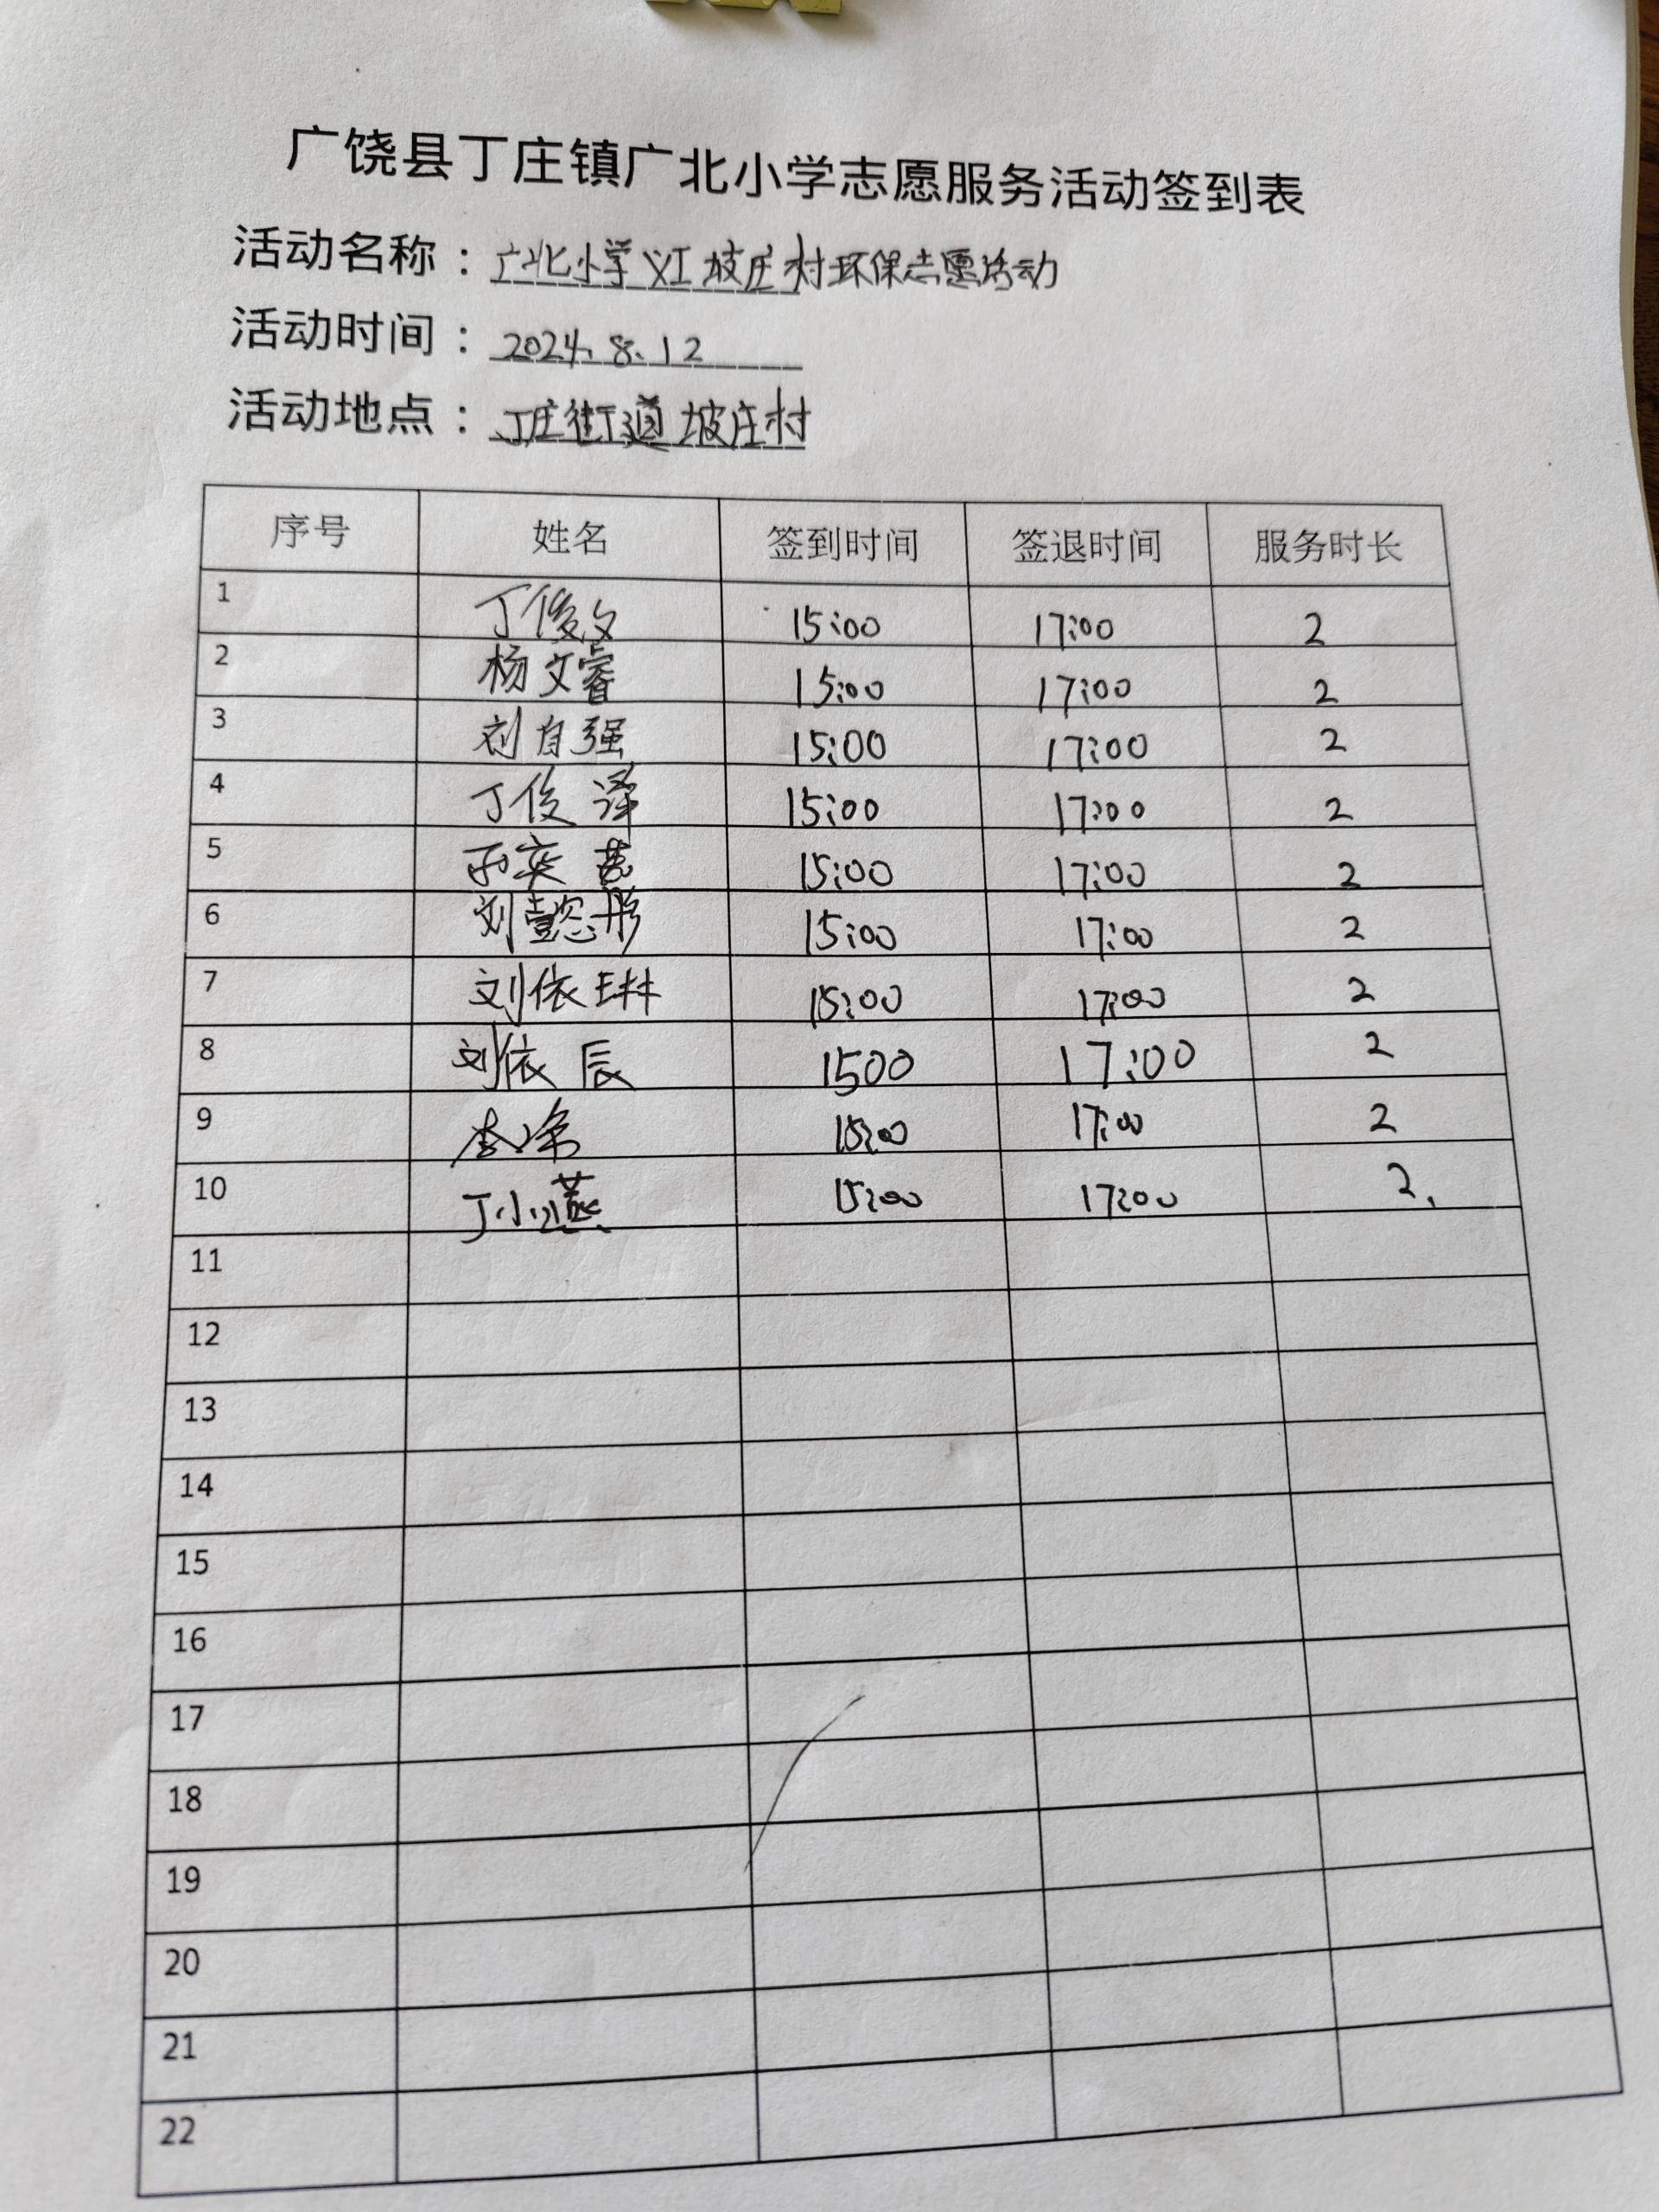 广饶县丁庄镇广北小学志愿服务活动签到表
活动名称：广北小学义工坡庄村环保志愿活动
活动时间：2024.8.12
活动地点：丁庄街道坡庄村
序号 姓名 签到时间 签退时间 服务时长
1 丁俊文 15:00 17:00 2
2 杨文睿 15:00 17:00 2
3 刘自强 15:00 17:00 2
4 丁俊泽 15:00 17:00 2
5 孙奕 15:00 17:00 2
6 刘懿彤 15:00 17:00 2
7 刘依琳 15:00 17:00 2
8 刘依辰 1500 17:00 2
9 15:00 17:00 2
10 丁小燕 15:00 17:00 2.
11
12
13
14
15
16
17
18
19
20
21
22